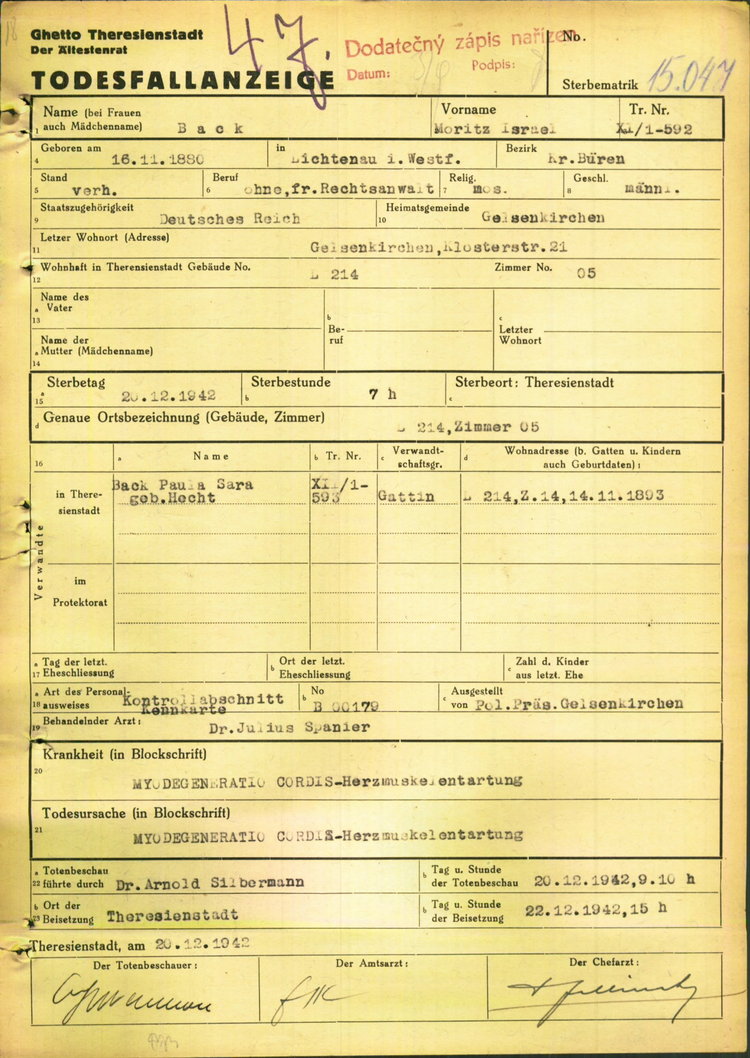 Ghetto Theresienstadt
Der Ältestenrat
TODESFALLANZEIGE
47.
Dodatečný zápis nařízen
Datum: Podpis:
No.
Sterbematrik 15.047
Name (bei Frauen auch Mädchenname) Back
Vorname Moritz Israel
Tr. Nr. XI/1-592
1
4 Geboren am 16.11.1880
in Lichtenau i.Westf.
Bezirk Kr.Büren
5 Stand verh.
6 Beruf ohne,fr.Rechtsanwalt
7 Relig. mos.
8 Geschl. männl.
9 Staatszugehörigkeit Deutsches Reich
10 Heimatsgemeinde Gelsenkirchen
11 Letzer Wohnort (Adresse) Gelsenkirchen,Klosterstr.21
12 Wohnhaft in Therensienstadt Gebäude No. L 214
Zimmer No. 05
a 13 Name des Vater
b Beruf
c Letzter Wohnort
a 14 Name der Mutter (Mädchenname)
a 15 Sterbetag 20.12.1942
b Sterbestunde 7 h
c Sterbeort: Theresienstadt
d Genaue Ortsbezeichnung (Gebäude, Zimmer) L 214,Zimmer 05
16
a Name
b Tr. Nr.
c Verwandtschaftsgr.
d Wohnadresse (b. Gatten u. Kindern auch Geburtdaten):
Verwandte
in Theresienstadt
Back Paula Sara
geb.Hecht
XII/1-
593
Gattin
L 214,Z.14,14.11.1893
im Protektorat
a 17 Tag der letzt. Eheschliessung
b Ort der letzt. Eheschliessung
c Zahl d. Kinder aus letzt. Ehe
a 18 Art des Personalausweises Kontrollabschnitt
Kennkarte
b No B 00179
c Ausgestellt von Pol.Präs.Gelsenkirchen
19 Behandelnder Arzt: Dr.Julius Spanier
20 Krankheit (in Blockschrift)
MYODEGENERATIO CORDIS-Herzmuskelentartung
21 Todesursache (in Blockschrift)
MYODEGENERATIO CORDIS-Herzmuskelentartung
a 22 Totenbeschau führte durch Dr.Arnold Silbermann
b Tag u. Stunde der Totenbeschau 20.12.1942,9.10 h
b 23 Ort der Beisetzung Theresienstadt
b Tag u. Stunde der Beisetzung 22.12.1942,15 h
Theresienstadt, am 20.12.1942
Der Totenbeschauer:
Der Amtsarzt:
Der Chefarzt: